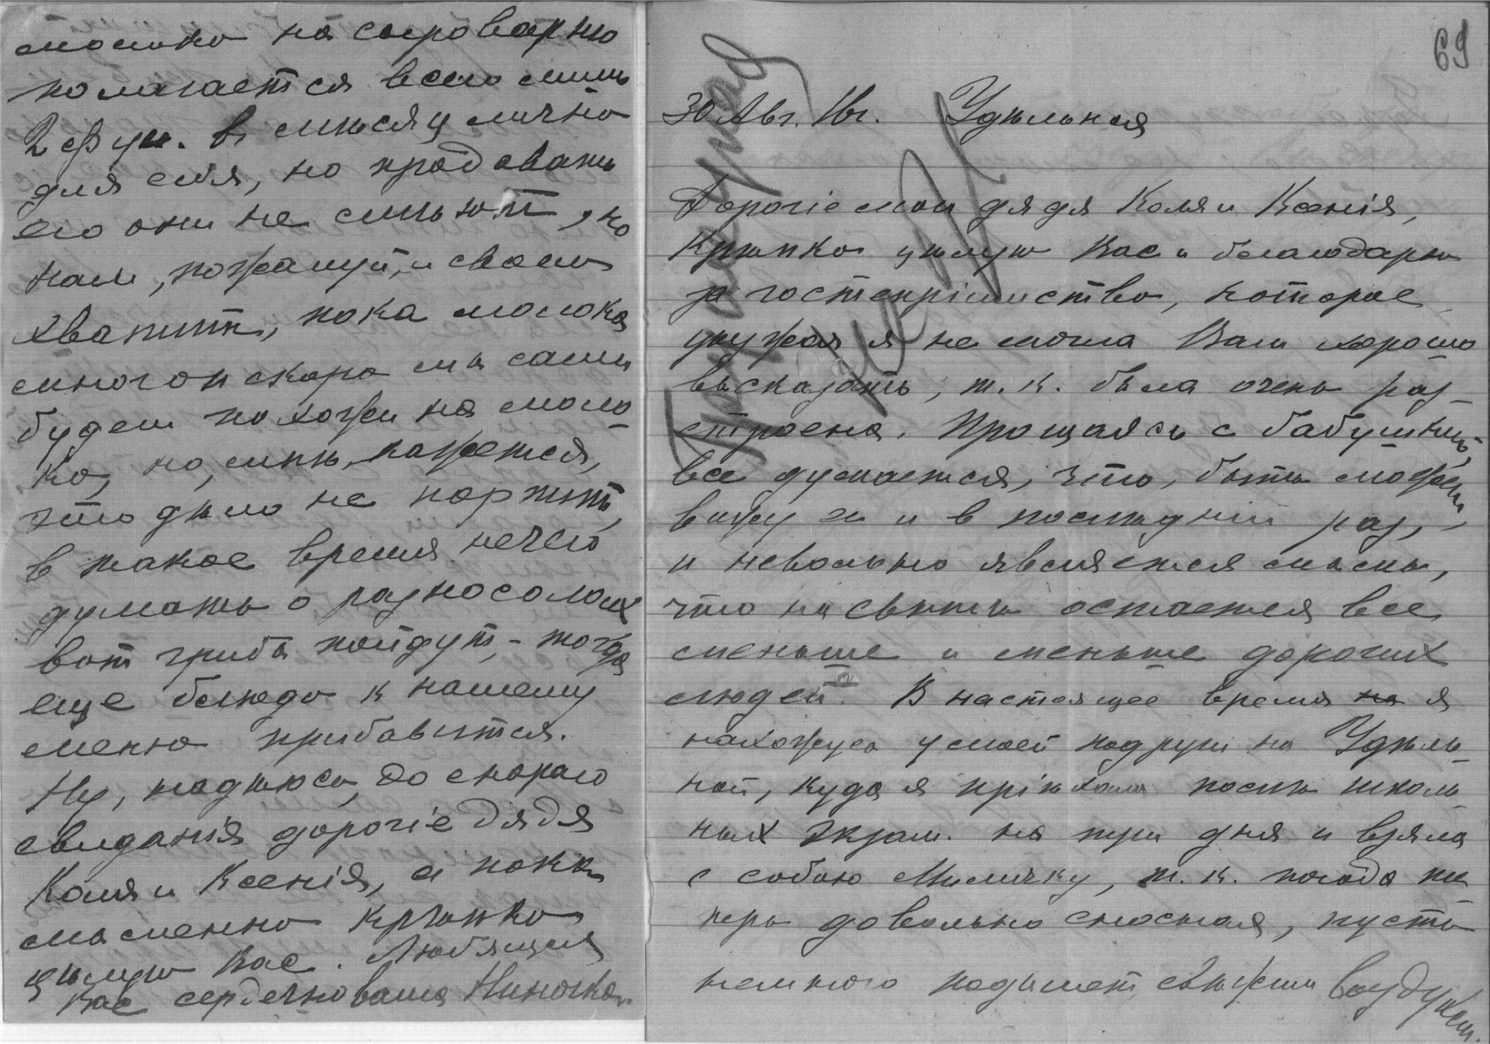 молоко на сыроварню
полагается всего лишь
2 фун. в мѣсяц лично
для себя, но продавать
его они не смѣют, но
нам, пожалуй, и своего
хватитъ, пока молока
много и скоро мы сами
будем похожи на моло-
ко, но, мнѣ, кажется,
это дѣло не портитъ,
в такое время нечего
думать о разносолах
вот грибы пойдут, - тогда
еще блюдо к нашему
меню прибавится.
Ну, надѣюсь, до скораго
свиданія дорогіе дядя
Коля и Ксенія, а пока
мысленно крѣпко
цѣлую Вас. Любящая
Вас сердечно ваша Ниночка.
69
30 Авг. 16г. Удѣльная
Дорогіе мои дядя Коля и Ксенія,
Крѣпко цѣлую Вас и благодарю
за гостепріимство, которое
уѣзжая я не могла Вам хорошо
высказать, т. к. была очень раз-
строена. Прощаясь с бабушкой,
все думается, что, быть может,
вижу ее и в послѣдній раз,
и невольно является мысль,
что на свѣтѣ остается все
меньше и меньше дорогих
людей. В настоящее время на я
нахожусь у моей подруги на Удѣль-
ной, куда я пріѣхала послѣ школь
ных экзам. на три дня и взяла
с собою Милочку, т. к. погода те
перь довольно сносная, пусть
немного подышет свѣжим воздухом.